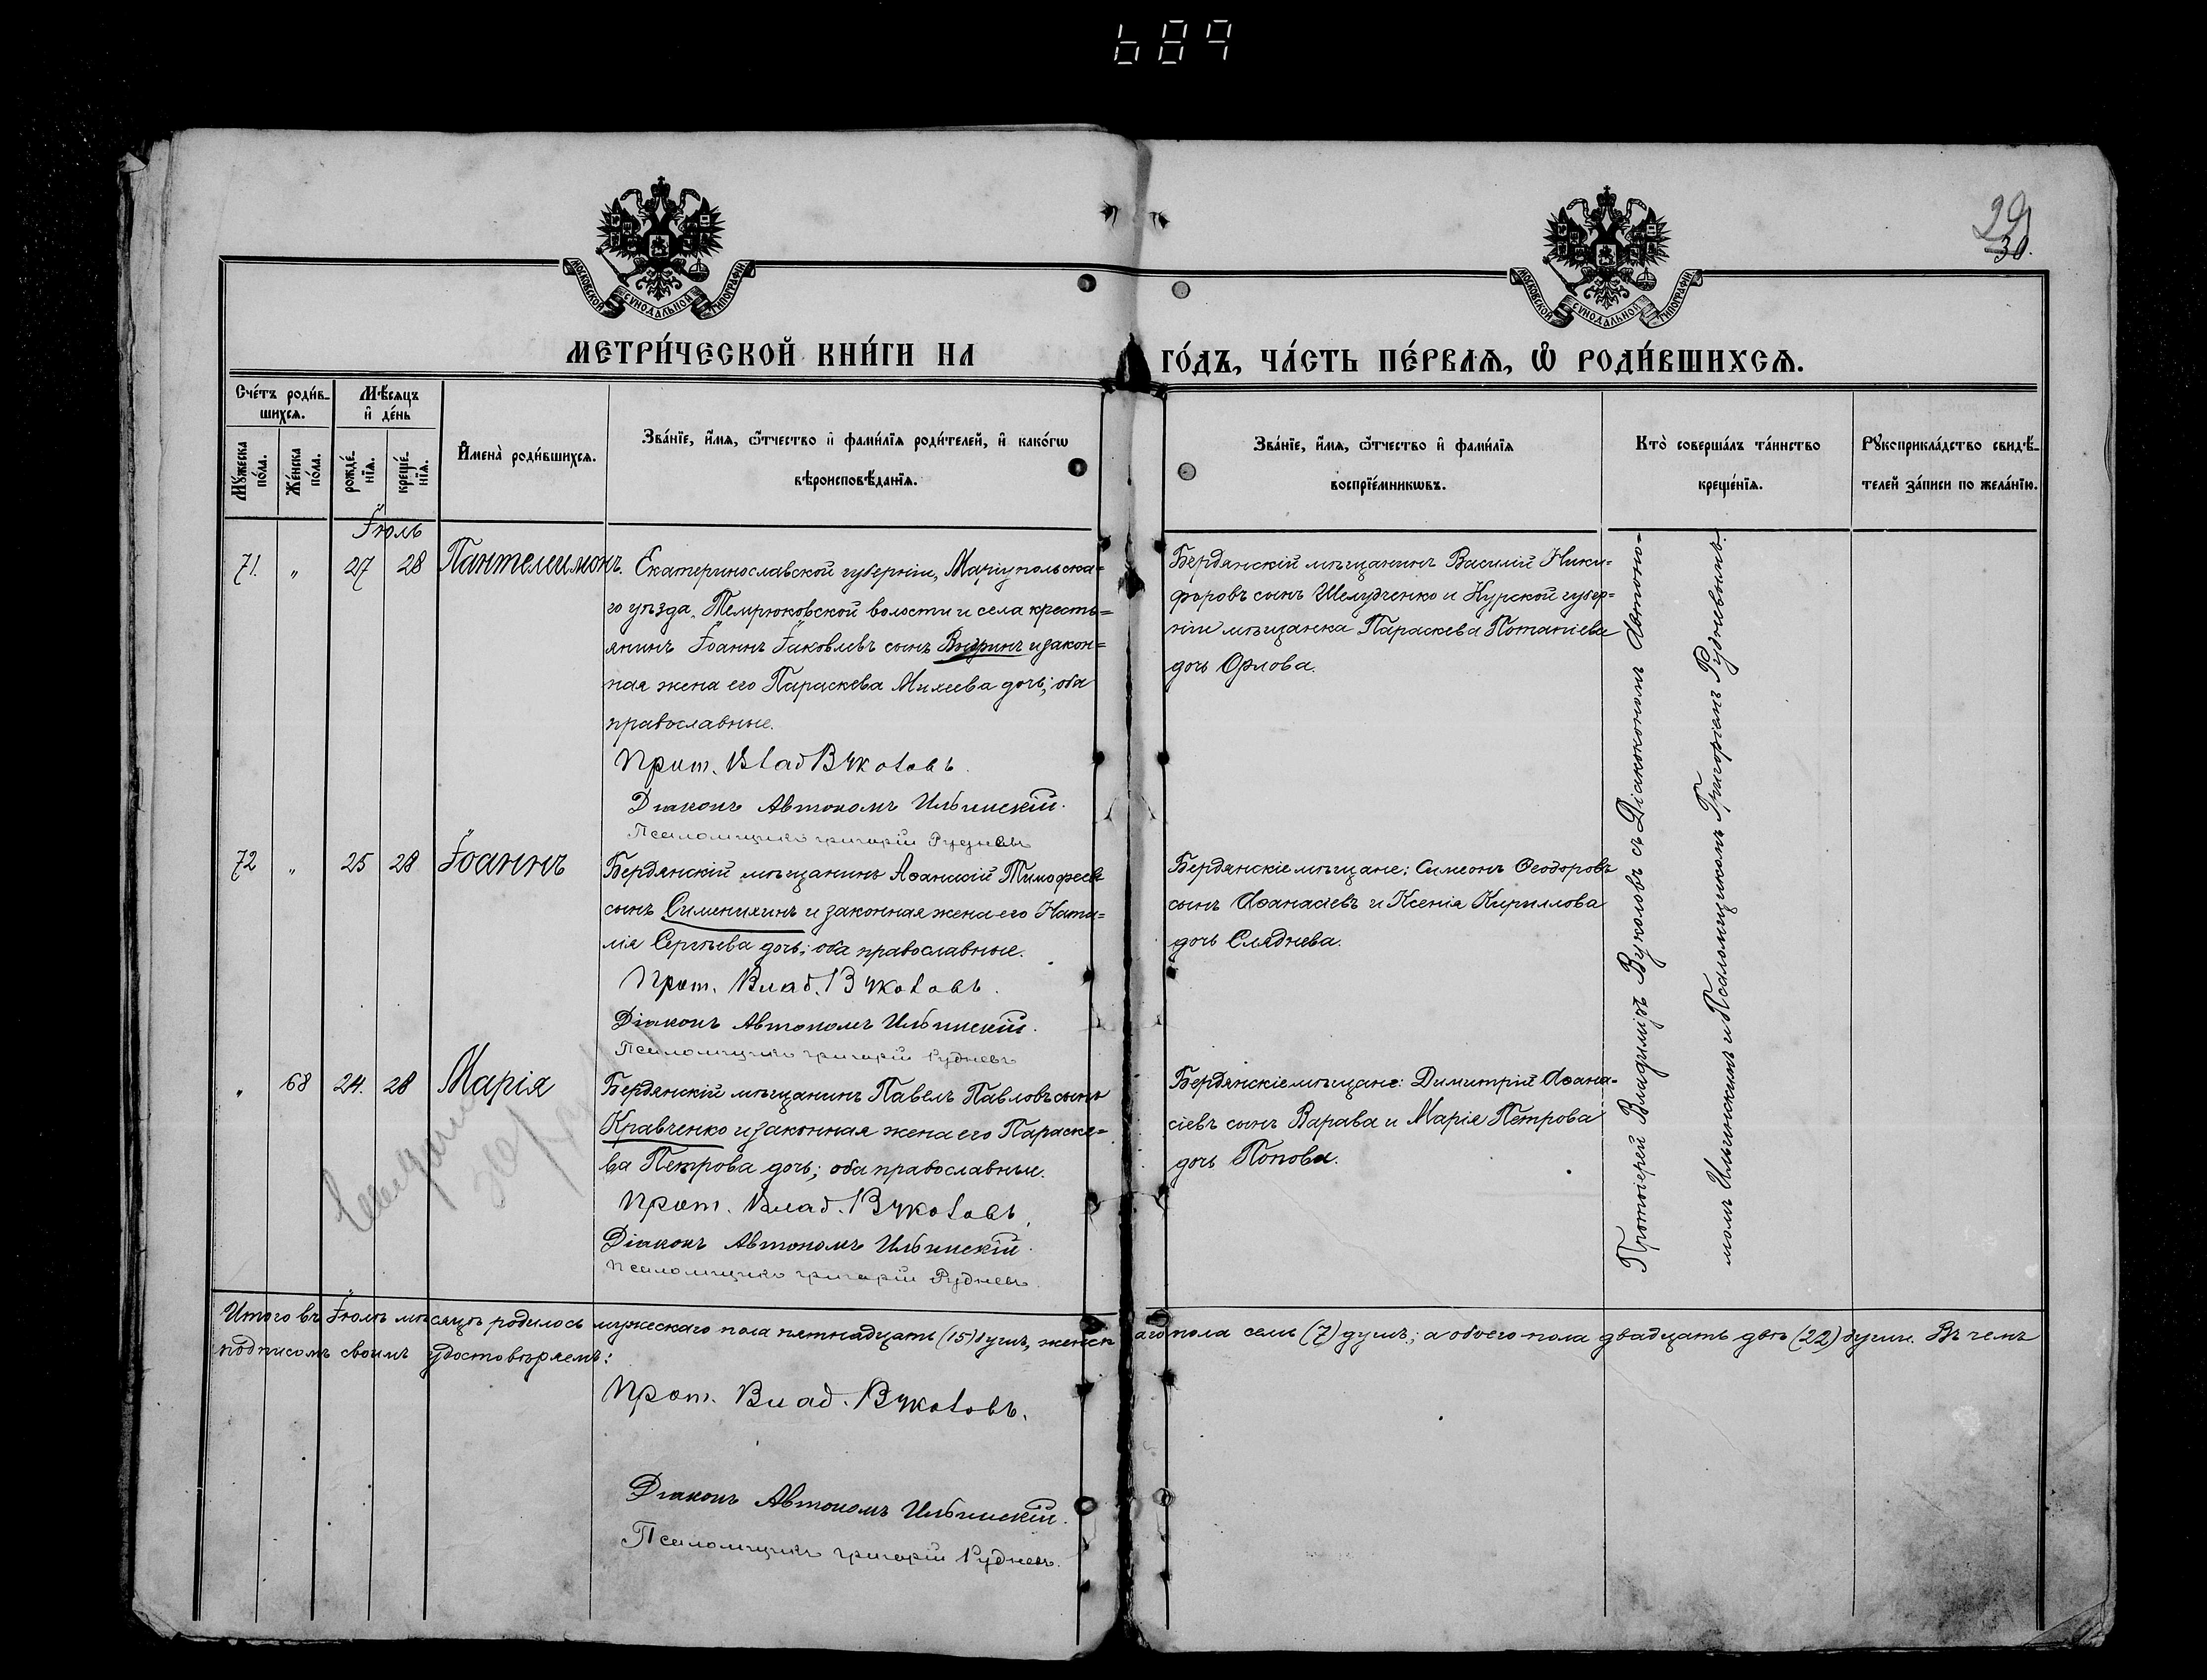 689
29
30.
МОСКОВСКОЙ СѴНОДАЛЬНОЙ ТИПОГРАФІИ
МОСКОВСКОЙ СѴНОДАЛЬНОЙ ТИПОГРАФІИ
МЕТРИ́ЧЕСКОЙ КНИ́ГИ НА ГО́ДЪ, ЧА́СТЬ ПЕ́РВАѦ, Ѿ РОДИ́ВШИХСѦ.
Сче́тъ роди́в-
шихсѧ.
Мꙋжеска по́ла.
Же́нска по́ла.
Мѣ́сѧцъ
и де́нь
рожде́нїѧ.
креще́нїѧ.
И҆мена̀ роди́вшихсѧ.
Зва́нїе, и҆́мѧ, ѻ҆́тчество и҆ фами́лїѧ роди́телей, и҆ како́гѡ
вѣроисповѣ́данїѧ.
Зва́нїе, и҆́мѧ, ѻ҆́тчество и҆ фами́лїѧ
воспрїе́мникѡвъ.
Кто̀ соверша́лъ та́инство
креще́нїѧ.
Рꙋкоприкла́дство свидѣ́-
телей за́писи по жела́нїю.
Іюль
71. " 27 28 Пантелеимонъ.
Екатеринославской губерніи, Маріупольска=
го уѣзда, Темрюковской волости и села кресть=
янинъ Іоаннъ Іаковлевъ сынъ и закон=
ная жена его Параскева Михеева дочь; оба
православные.
Прот. Влад Вуколовъ.
Діаконъ Автономъ Ильинскій.
Псаломщикъ Григорій Рудневъ
Бердянскій мѣщанинъ Василій Ники=
форовъ сынъ Шелудченко и Курской губер=
ніи мѣщанка Параскева Потапіева
дочь Орлова.
72 " 25 28 Іоаннъ
Бердянскій мѣщанинъ Аѳанасій Тимофеевъ
сынъ Сименихинъ и законная жена его Ната=
лія Сергѣева дочь; оба православные.
Прот. Влад. Вуколовъ.
Діаконъ Автономъ Ильинскій.
Псаломщикъ Григорій Рудневъ
Бердянскіе мѣщане: Симеонъ Ѳеодоровъ
сынъ Аѳанасіевъ и Ксенія Кириллова
дочь Сляднева.
" 68 24. 28 Марія
Бердянскій мѣщанинъ Павелъ Павловъ сынъ
Кравченко и законная жена его Параске=
ва Петрова дочь; оба православные.
Прот. Влад. Вуколовъ.
Діаконъ Автономъ Ильинскій.
Псаломщикъ Григорій Рудневъ.
Бердянскіе мѣщане: Димитрій Аѳана-
сіевъ сынъ Варава и Марія Петрова
дочь Попова.
Протоіерей Владиміръ Вуколовъ съ Діакономъ Автоно-
момъ Ильинскимъ и Псаломщикомъ Григоріемъ Рудневымъ.
Итого въ Іюлѣ мѣсяцѣ родилось мужескаго пола пятнадцать (15) душъ, женскаго пола семь (7) душъ; а обоего пола двадцать двѣ (22) души. Въ чемъ
подписомъ своимъ удостовѣряемъ:
Прот. Влад. Вуколовъ.
Діаконъ Автономъ Ильинскій.
Псаломщикъ Григорій Рудневъ.